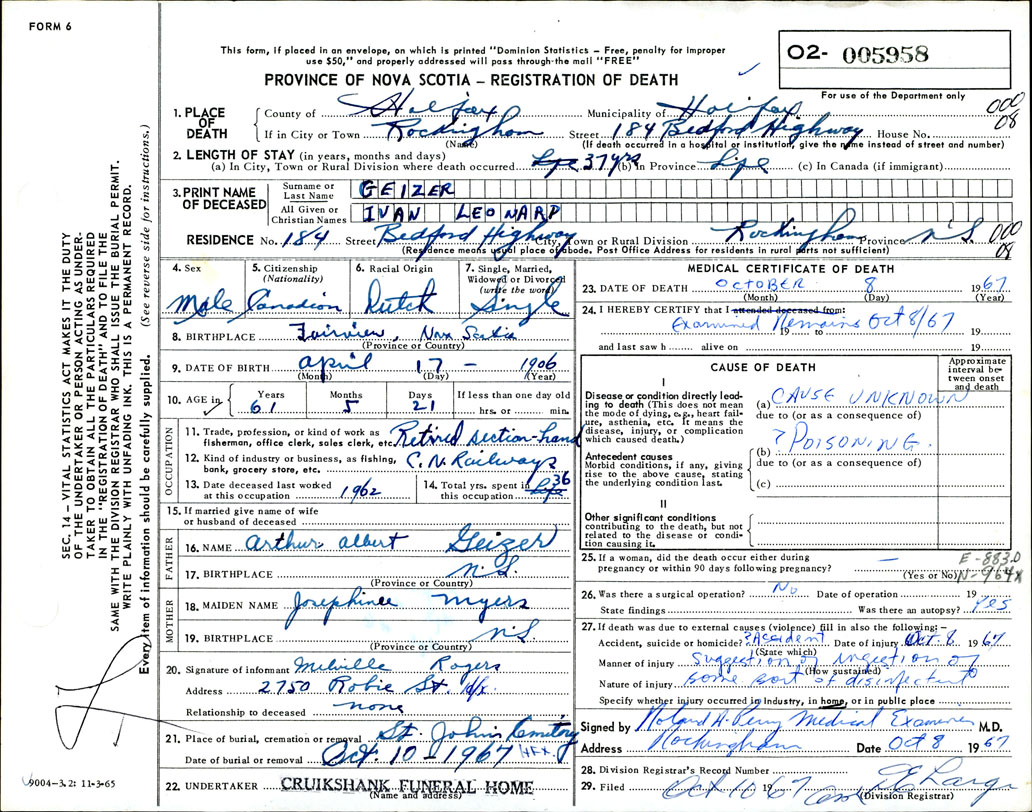 FORM 6
This form, if placed in an envelope, on which is printed "Dominion Statistics – Free, penalty for improper
use $50," and properly addressed will pass through the mail "FREE"
PROVINCE OF NOVA SCOTIA – REGISTRATION OF DEATH
O2- 005958
For use of the Department only
000
08
1. PLACE OF DEATH
County of Halifax Municipality of Halifax
If in City or Town Rockingham Street 184 Bedford Highway House No.
(Name) (If death occurred in a hospital or institution, give the name instead of street and number)
2. LENGTH OF STAY (in years, months and days)
(a) In City, Town or Rural Division where death occurred. Life 37 yrs (b) in Province Life (c) In Canada (if immigrant)
3. PRINT NAME OF DECEASED
Surname or Last Name GEIZER
All Given or Christian Names IVAN LEONARD
RESIDENCE No. 184 Street Bedford Highway City, Town or Rural Division Rockingham Province N.S. 000
08
(Residence means usual place of abode. Post Office Address for residents in rural parts not sufficient)
4. Sex
Male
5. Citizenship (Nationality)
Canadian
6. Racial Origin
Dutch
7. Single, Married, Widowed or Divorced (write the word)
Single
8. BIRTHPLACE Fairview, Nova Scotia
(Province or Country)
9. DATE OF BIRTH April 17 – 1906
(Month) (Day) (Year)
10. AGE in Years Months Days If less than one day old
61 5 21 hrs. or min.
OCCUPATION
11. Trade, profession or kind of work as fisherman, office clerk, sales clerk, etc. Retired section-hand
12. Kind of industry or business, as fishing, bank, grocery store, etc. C.N. Railways
13. Date deceased last worked at this occupation 1962
14. Total yrs. spent in this occupation Life 36
15. If married give name of wife or husband of deceased
FATHER
16. NAME Arthur Albert Geizer
17. BIRTHPLACE N.S.
(Province or Country)
MOTHER
18. MAIDEN NAME Josephinee Myers
19. BIRTHPLACE N.S.
(Province or Country)
20. Signature of informant Melville Rogers
Address 2750 Robie St. Hfx.
Relationship to deceased none
21. Place of burial, cremation or removal St. John's Cemetery
Date of burial or removal Oct. 10 – 1967 HFX.
22. UNDERTAKER CRUIKSHANK FUNERAL HOME
(Name and address)
MEDICAL CERTIFICATE OF DEATH
23. DATE OF DEATH OCTOBER 8 1967
(Month) (Day) (Year)
24. I HEREBY CERTIFY that I attended deceased from:
Examined Remains Oct 8/67
19 to 19
and last saw h alive on 19
CAUSE OF DEATH
Approximate interval between onset and death
I
Disease or condition directly leading to death (This does not mean the mode of dying, e.g., heart failure, asthenia, etc. It means the disease, injury, or complication which caused death.)
(a) CAUSE UNKNOWN
due to (or as a consequence of)
Antecedent causes
Morbid conditions, if any, giving rise to the above cause, stating the underlying condition last.
(b) ? POISONING.
due to (or as a consequence of)
(c)
II
Other significant conditions contributing to the death, but not related to the disease or condition causing it.
25. If a woman, did the death occur either during pregnancy or within 90 days following pregnancy? —
(Yes or No)
E-883.0
N-964x
26. Was there a surgical operation? No Date of operation 19
State findings Was there an autopsy? Yes
27. If death was due to external causes (violence) fill in also the following:–
Accident, suicide or homicide? ?Accident Date of injury Oct. 8 1967
(State which)
Manner of injury Suggestion of ingestion of
(How sustained)
Nature of injury some sort of disinfectent
Specify whether injury occurred in Industry, in home, or in public place
Signed by Roland A. Perry Medical Examiner M.D.
Address Rockingham Date Oct 8 1967
28. Division Registrar's Record Number
29. Filed Oct 10 1967
(Division Registrar)
SEC. 14 – VITAL STATISTICS ACT MAKES IT THE DUTY
OF THE UNDERTAKER OR PERSON ACTING AS UNDER-
TAKER TO OBTAIN ALL THE PARTICULARS REQUIRED
IN THE "REGISTRATION OF DEATH" AND TO FILE THE
SAME WITH THE DIVISION REGISTRAR WHO SHALL ISSUE THE BURIAL PERMIT.
WRITE PLAINLY WITH UNFADING INK. THIS IS A PERMANENT RECORD.
Every item of information should be carefully supplied. (See reverse side for instructions.)
9004-3.2: 11-3-65